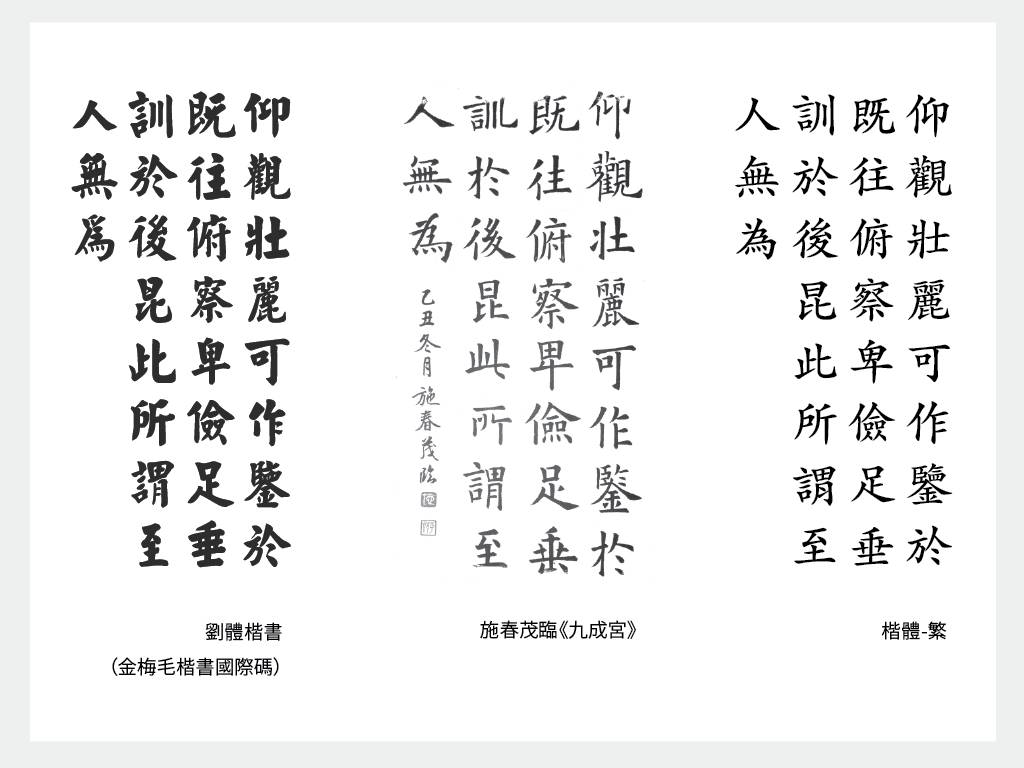 仰觀壯麗可作鑒於
既往俯察卑儉足垂
訓於後昆此所謂至
人無為
劉體楷書
（金梅毛楷書國際碼）
仰觀壯麗可作鍳於
既往俯察卑儉足垂
訓於後昆此所謂至
人無為
乙丑冬月施春茂臨
施春茂臨《九成宮》
仰觀壯麗可作鑒於
既往俯察卑儉足垂
訓於後昆此所謂至
人無為
楷體-繁